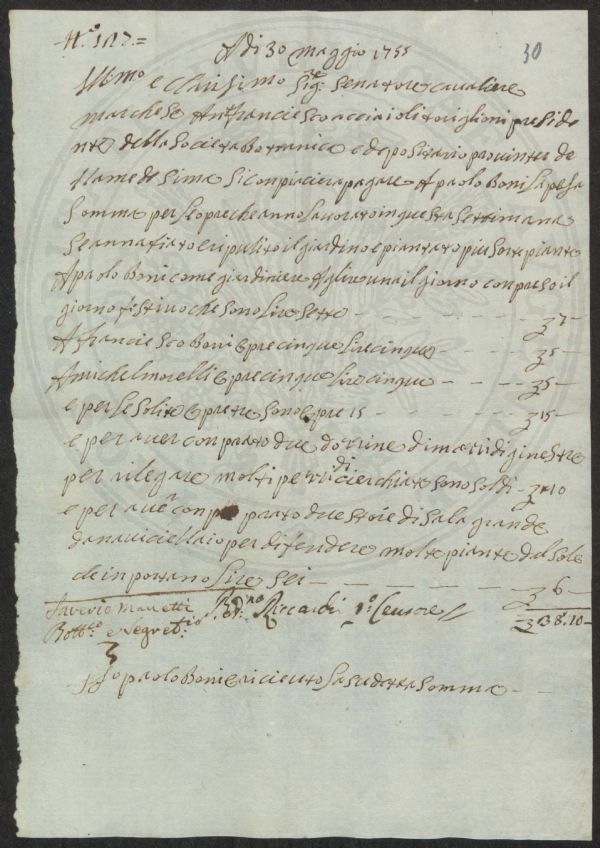 N.º 117.=
A di 30 maggio 1755
30
Illmo e Clarisimo Sig.re Senatore cavaliere
marchese Ant.º franciesco acciaioli toriglioni preside
nte della Società Botanica e depositario pro inter de
Ilame desima Si conpiacierà pagare A paolo Boni la pesa
Somma per le opre che anno lavorato in questa Settimana
Se annafiato e ripulito il giardino e piantato piu sorte piante
A paolo Boni come giardiniere A lire una il giorno conpreso il
giorno festivo che sono lire sette — 7 —
A franciesco Boni opre cinque lire cinque — 5 —
A michel morelli opre cinque lire cinque — 5 —
e per le solite opre tre sono opre 15 — 15 —
e per aver conprato due dozzine di mazzi di ginestre
per rilegare molti peri di cierchiate sono soldi — 10
e per aver conprato due stoie di sala grande
da naviciellaio per difendere molte piante dal sole
che inportano lire sei — 6 —
Saverio Manetti
Bott.co e Segret.rio
Riccardi 1º: Censore
38.10 —
Io paolo Boni ò riceuto la sudetta somma —